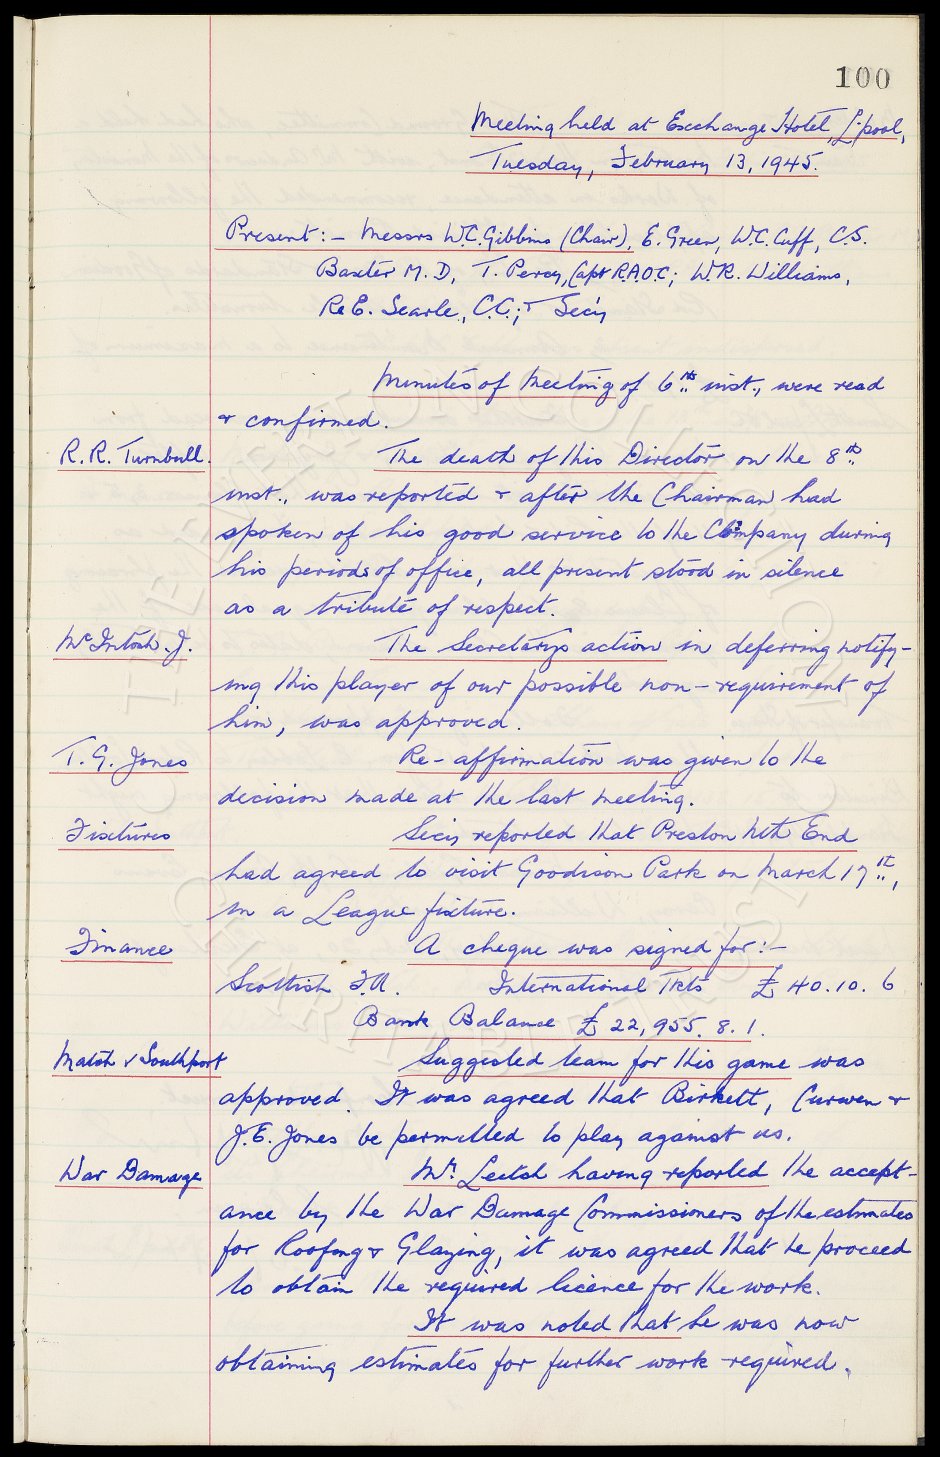 100
Meeting held at Exchange Hotel, L'pool,
Tuesday, February 13, 1945.
Present:- Messrs W.C. Gibbins (Chair), E. Green, W.C. Cuff, C.S.
Baxter M.D., T. Percy, Capt R.A.O.C; W.R. Williams,
R.E. Searle, C.C.; & Secy
Minutes of Meeting of 6th inst., were read
& confirmed.
R.R. Turnbull. The death of this Director on the 8th
inst., was reported & after the Chairman had
spoken of his good service to the Company during
his periods of office, all present stood in silence
as a tribute of respect.
McIntosh. J. The Secretarys action in deferring notify-
ing this player of our possible non-requirement of
him, was approved.
T.G. Jones Re-affirmation was given to the
decision made at the last meeting.
Fixtures Secy reported that Preston Nth End
had agreed to visit Goodison Park on March 17th,
in a League fixture.
Finance A cheque was signed for:-
Scottish F.A. International Tkts £40.10.6
Bank Balance £22,955.8.1.
Match v Southport Suggested team for this game was
approved. It was agreed that Birkett, Curwen &
J.E. Jones be permitted to play against us.
War Damage Mr. Leitch having reported the accept-
ance by the War Damage Commissioners of the estimates
for Roofing & Glazing, it was agreed that he proceed
to obtain the required licence for the work.
It was noted that he was now
obtaining estimates for further work required.
THE EVERTON COLLECTION
CHARITABLE TRUST